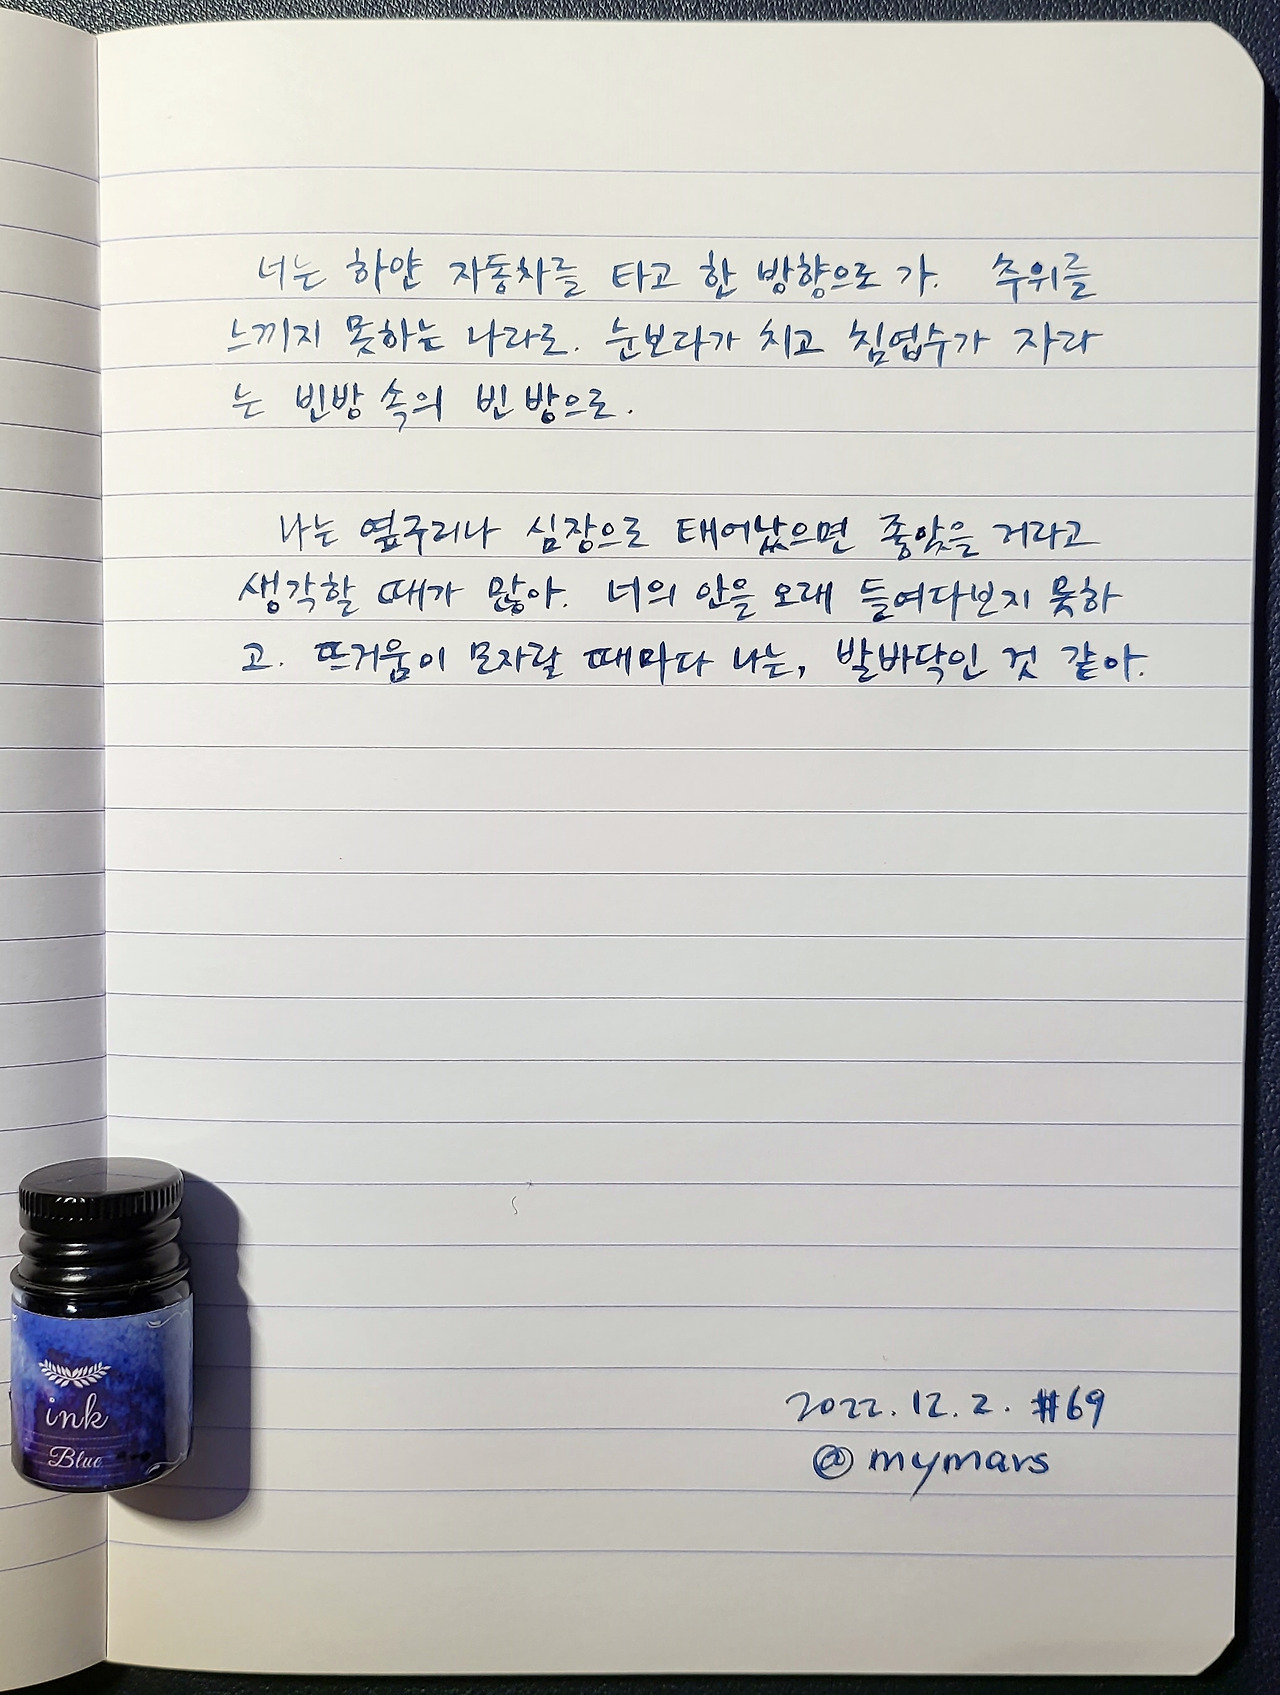 너는 하얀 자동차를 타고 한 방향으로 가. 추위를
느끼지 못하는 나라로. 눈보라가 치고 침엽수가 자라
는 빈방 속의 빈 방으로.
나는 옆구리나 심장으로 태어났으면 좋았을 거라고
생각할 때가 많아. 너의 안을 오래 들여다보지 못하
고. 뜨거움이 모자랄 때마다 나는, 발바닥인 것 같아.
2022. 12. 2. #69
@mymars
ink
Blue